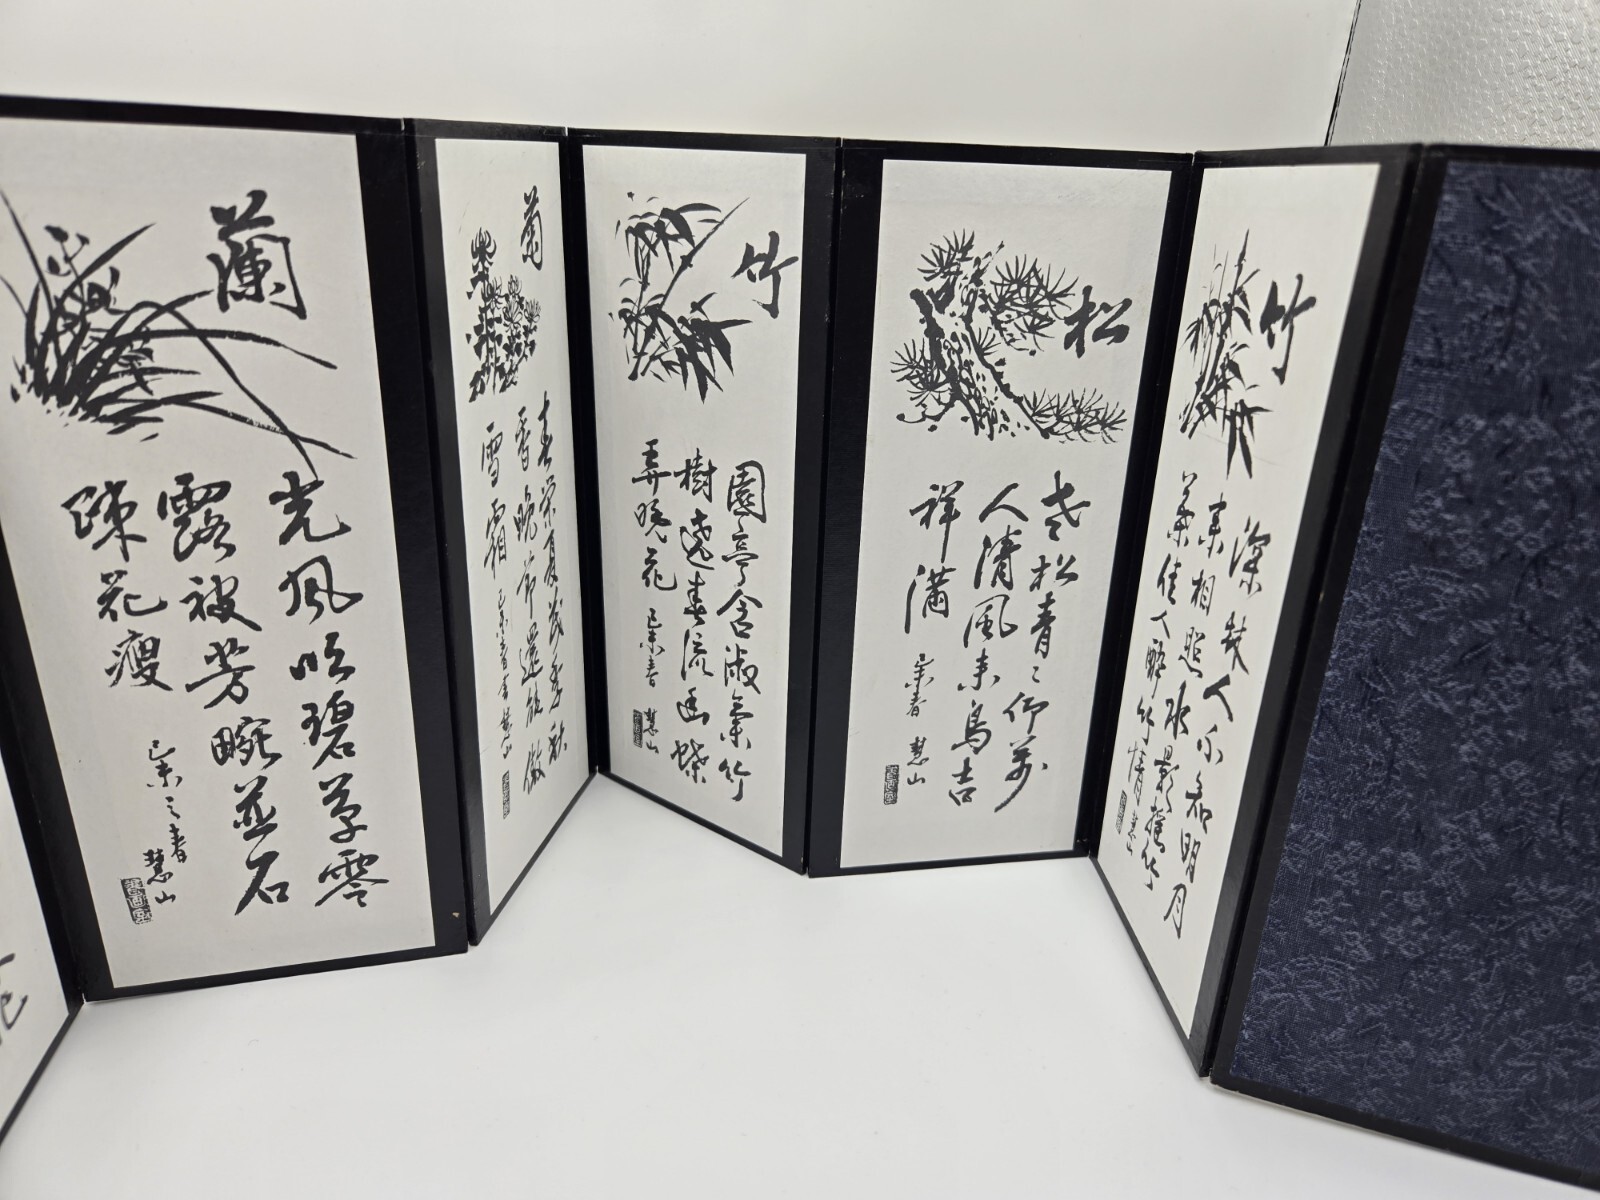 竹
深林人不知明月
來相照水影搖竹
葉佳人醉竹情 慧山
松
老松青々仰萬
人清風來鳥吉
祥滿
己未春 慧山
竹
園亭含淑氣竹
樹遶春流幽蝶
弄晩花
己未春 慧山
菊
春榮夏茂秀秋
香晩節還能傲
雪霜
己未春 慧山
蘭
光風吹碧草零
露被芳畹並石
疎花瘦
己未之春
慧山